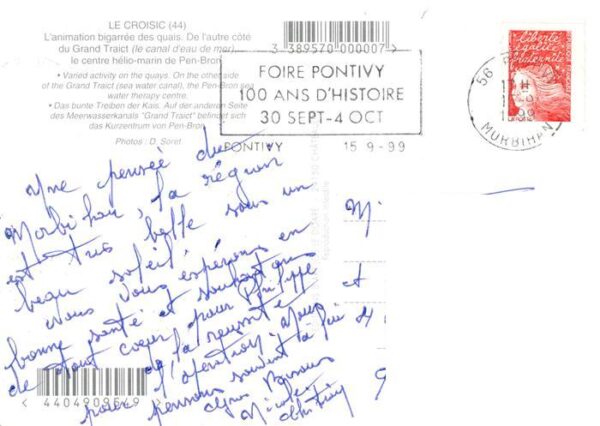 LE CROISIC (44)
L'animation bigarrée des quais. De l'autre côté
du Grand Traict (le canal d'eau de mer),
le centre hélio-marin de Pen-Bron.
• Varied activity on the quays. On the other side
of the Grand Traict (sea water canal), the Pen-Bron
sea water therapy centre.
• Das bunte Treiben der Kais. Auf der anderen Seite
des Meerwasserkanals "Grand Traict" befindet sich
das Kurzentrum von Pen-Bron.
Photos : D. Soret
3 389570 000007
FOIRE PONTIVY
100 ANS D'HISTOIRE
30 SEPT-4 OCT
PONTIVY 15 9-99
liberté
égalité
fraternité
56
MORBIHAN
Une pensée du
Morbihan la région
est très belle sous un
beau soleil.
Nous vous espérons en
bonne santé et souhaitons
de tout coeur pour Philippe
de la réussite
pour l'opération, Nous
pensons souvent à
Gros Bisous
Nicole
M
et
4404 0909549